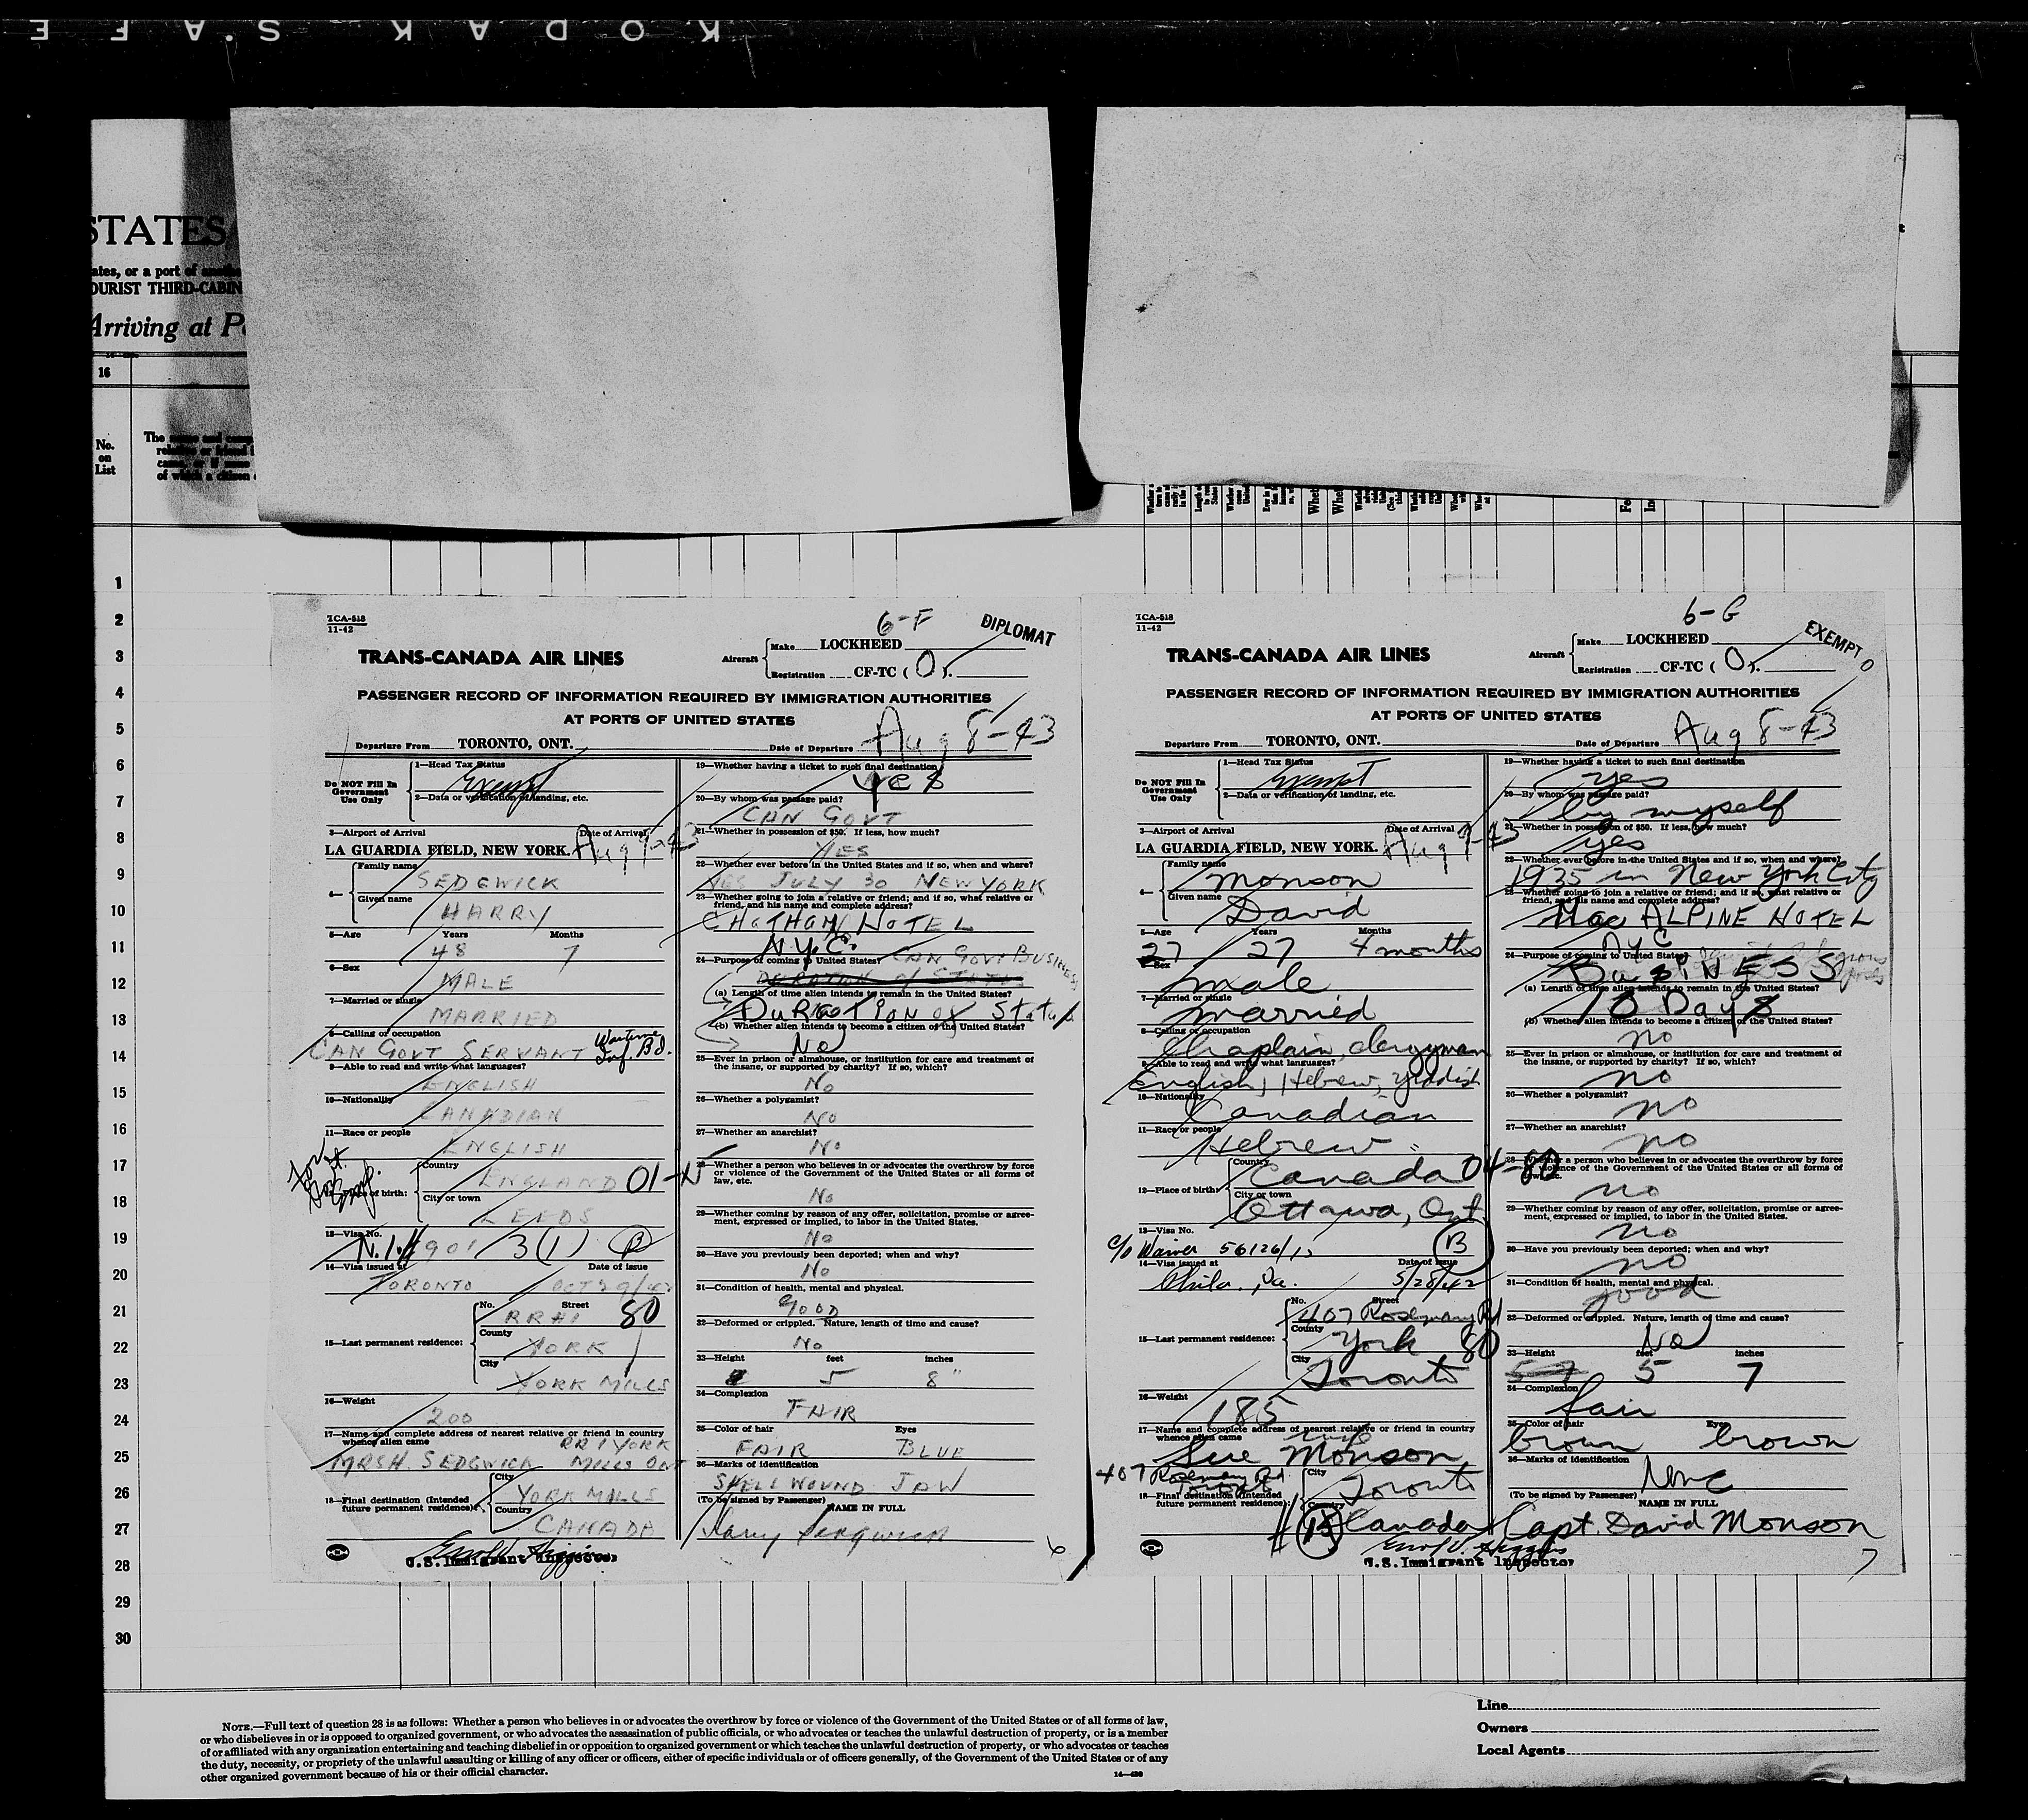 KODAK S.AFE
STATES
ates, or a port of
OURIST THIRD-CABIN
Arriving at P
16
No.
on
List
The
of which a citizen
1
2
3
4
5
6
7
8
9
10
11
12
13
14
15
16
17
18
19
20
21
22
23
24
25
26
27
28
29
30
TCA-518
11-42
6-F
DIPLOMAT
TRANS-CANADA AIR LINES
Aircraft
Make LOCKHEED
Registration CF-TC ( O ).
PASSENGER RECORD OF INFORMATION REQUIRED BY IMMIGRATION AUTHORITIES
AT PORTS OF UNITED STATES
Departure From TORONTO, ONT. Date of Departure Aug 8-43
Do NOT Fill In
Government
Use Only
1—Head Tax Status
Exempt
2—Data or verification of landing, etc.
3—Airport of Arrival Date of Arrival
LA GUARDIA FIELD, NEW YORK. Aug 9-43
4—
Family name
SEDGWICK
Given name
HARRY
5—Age Years Months
48 7
6—Sex
MALE
7—Married or single
MARRIED
8—Calling or occupation
CAN GOVT SERVANT Wartime Inf. Bd.
9—Able to read and write what languages?
ENGLISH
10—Nationality
CANADIAN
11—Race or people
ENGLISH
12—Place of birth:
Country
ENGLAND 01-N
City or town
LEEDS
13—Visa No.
N.I.# 901 3(1) B
14—Visa issued at Date of issue
TORONTO OCT 29/42
15—Last permanent residence:
No. Street
RR#1 80
County
YORK
City
YORK MILLS
16—Weight
200
17—Name and complete address of nearest relative or friend in country
whence alien came RR 1 YORK
MRS H. SEDGWICK MILLS ONT
18—Final destination (Intended
future permanent residence):
City
YORK MILLS
Country
CANADA
U.S. Immigrant Inspector
19—Whether having a ticket to such final destination
Yes
20—By whom was passage paid?
CAN GOVT
21—Whether in possession of $50. If less, how much?
YES
22—Whether ever before in the United States and if so, when and where?
YES JULY 30 NEW YORK
23—Whether going to join a relative or friend; and if so, what relative or
friend, and his name and complete address?
CHATHAM HOTEL
N.Y.C.
24—Purpose of coming to United States? CAN GOVT BUSINESS
DURATION of STATUS
(a) Length of time alien intends to remain in the United States?
DURATION of Status
(b) Whether alien intends to become a citizen of the United States?
No
25—Ever in prison or almshouse, or institution for care and treatment of
the insane, or supported by charity? If so, which?
No
26—Whether a polygamist?
NO
27—Whether an anarchist?
No
28—Whether a person who believes in or advocates the overthrow by force
or violence of the Government of the United States or all forms of
law, etc.
No
29—Whether coming by reason of any offer, solicitation, promise or agree-
ment, expressed or implied, to labor in the United States.
No
30—Have you previously been deported; when and why?
No
31—Condition of health, mental and physical.
GOOD
32—Deformed or crippled. Nature, length of time and cause?
No
33—Height feet inches
5 8"
34—Complexion
FAIR
35—Color of hair Eyes
FAIR BLUE
36—Marks of identification
SHELL WOUND JAW
(To be signed by Passenger) NAME IN FULL
Harry Sedgwick
6
TCA-518
11-42
6-G
EXEMPT
TRANS-CANADA AIR LINES
Aircraft
Make LOCKHEED
Registration CF-TC ( O ).
PASSENGER RECORD OF INFORMATION REQUIRED BY IMMIGRATION AUTHORITIES
AT PORTS OF UNITED STATES
Departure From TORONTO, ONT. Date of Departure Aug 8-43
Do NOT Fill In
Government
Use Only
1—Head Tax Status
Exempt
2—Data or verification of landing, etc.
3—Airport of Arrival Date of Arrival
LA GUARDIA FIELD, NEW YORK. Aug 9-43
4—
Family name
Monson
Given name
David
5—Age Years Months
27 27 4 months
6—Sex
male
7—Married or single
married
8—Calling or occupation
Chaplain, clergyman
9—Able to read and write what languages?
English, Hebrew, Yiddish
10—Nationality
Canadian
11—Race or people
Hebrew
12—Place of birth:
Country
Canada 04-80
City or town
Ottawa, Ont
13—Visa No.
c/o Waiver 56126/12 B
14—Visa issued at Date of issue
Phila., Pa. 5/28/42
15—Last permanent residence:
No. Street
407 Rosemary Rd
County
York 80
City
Toronto
16—Weight
185
17—Name and complete address of nearest relative or friend in country
whence alien came wife
Sue Monson
407 Rosemary Rd.
Toronto
18—Final destination (Intended
future permanent residence):
City
Toronto
Country
Canada
U.S. Immigrant Inspector
19—Whether having a ticket to such final destination
yes
20—By whom was passage paid?
by myself
21—Whether in possession of $50. If less, how much?
yes
22—Whether ever before in the United States and if so, when and where?
1935 in New York City
23—Whether going to join a relative or friend; and if so, what relative or
friend, and his name and complete address?
Mac ALPINE HOTEL
NYC
24—Purpose of coming to United States?
BUSINESS
(a) Length of time alien intends to remain in the United States?
10 Days
(b) Whether alien intends to become a citizen of the United States?
no
25—Ever in prison or almshouse, or institution for care and treatment of
the insane, or supported by charity? If so, which?
no
26—Whether a polygamist?
no
27—Whether an anarchist?
no
28—Whether a person who believes in or advocates the overthrow by force
or violence of the Government of the United States or all forms of
law, etc.
no
29—Whether coming by reason of any offer, solicitation, promise or agree-
ment, expressed or implied, to labor in the United States.
no
30—Have you previously been deported; when and why?
no
31—Condition of health, mental and physical.
good
32—Deformed or crippled. Nature, length of time and cause?
No
33—Height feet inches
5 7
34—Complexion
fair
35—Color of hair Eyes
brown brown
36—Marks of identification
None
(To be signed by Passenger) NAME IN FULL
Capt. David Monson
7
NOTE.—Full text of question 28 is as follows: Whether a person who believes in or advocates the overthrow by force or violence of the Government of the United States or of all forms of law,
or who disbelieves in or is opposed to organized government, or who advocates the assassination of public officials, or who advocates or teaches the unlawful destruction of property, or is a member
of or affiliated with any organization entertaining and teaching disbelief in or opposition to organized government or which teaches the unlawful destruction of property, or who advocates or teaches
the duty, necessity, or propriety of the unlawful assaulting or killing of any officer or officers, either of specific individuals or of officers generally, of the Government of the United States or of any
other organized government because of his or their official character.
Line
Owners
Local Agents